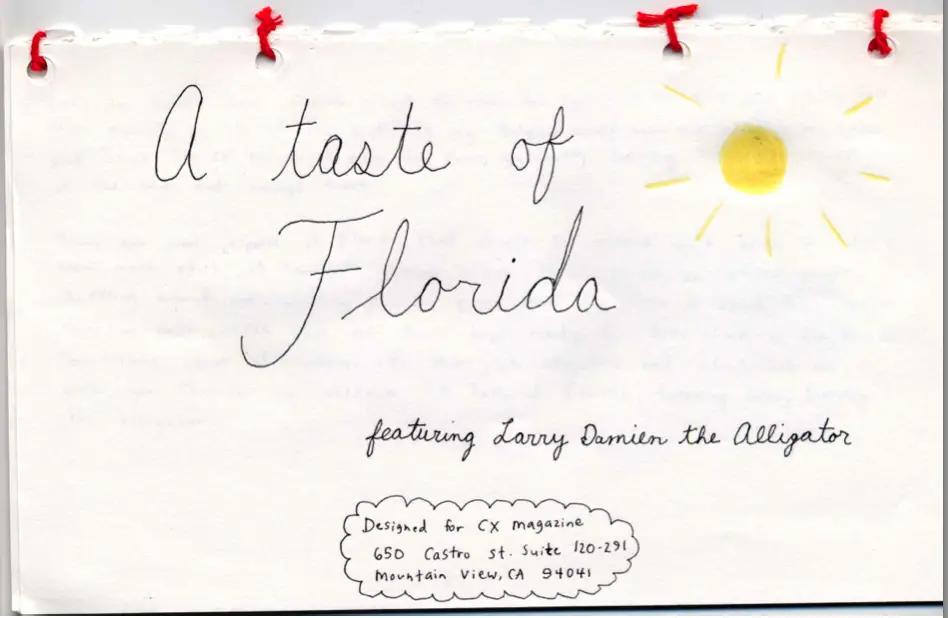 A taste of
Florida
featuring Larry Damien the Alligator
Designed for CX magazine
650 Castro St. Suite 120-291
Mountain View, CA 94041